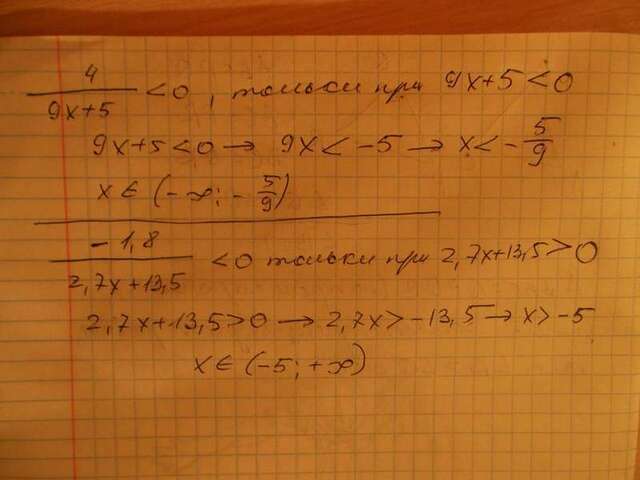 4/(9x+5) <0, тольки при 9x+5<0
9x+5<0 → 9x<-5 → x<-5/9
x∈(-∞;-5/9)
-1,8/(2,7x+13,5) <0 тольки при 2,7x+13,5>0
2,7x+13,5>0 → 2,7x>-13,5→ x>-5
x∈(-5;+∞)